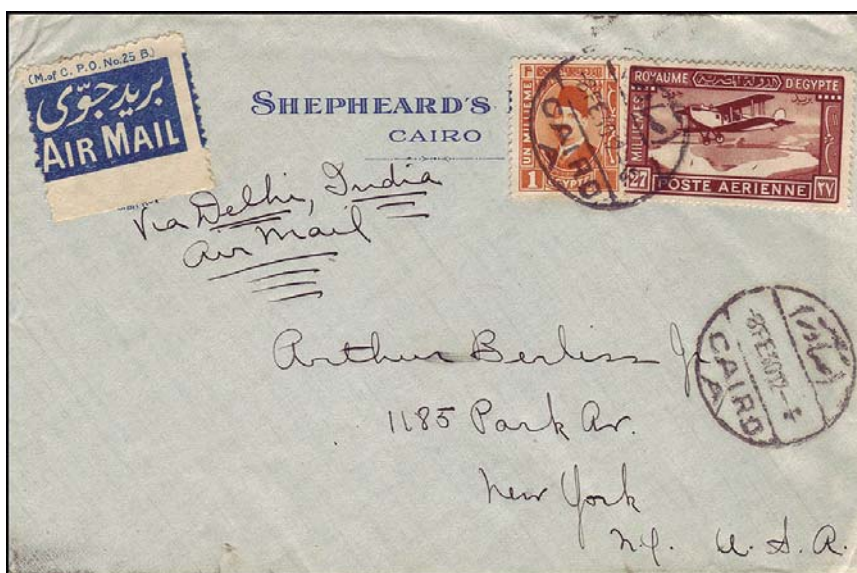 (M. of C. P. O. No. 25 B.)
بريد جوّى
AIR MAIL
SHEPHEARD'S
CAIRO
UN MILLIEME
1
EGYPTE
ROYAUME D'EGYPTE
الدولة المصرية
MILLIEMES
27
POSTE AERIENNE
٢٧
CAIRO
A
Via Delhi, India
Air Mail
Arthur Berliss Jr
1185 Park Av.
New York
N.Y. U. S. A.
-8 FE 30 12-
CAIRO
A